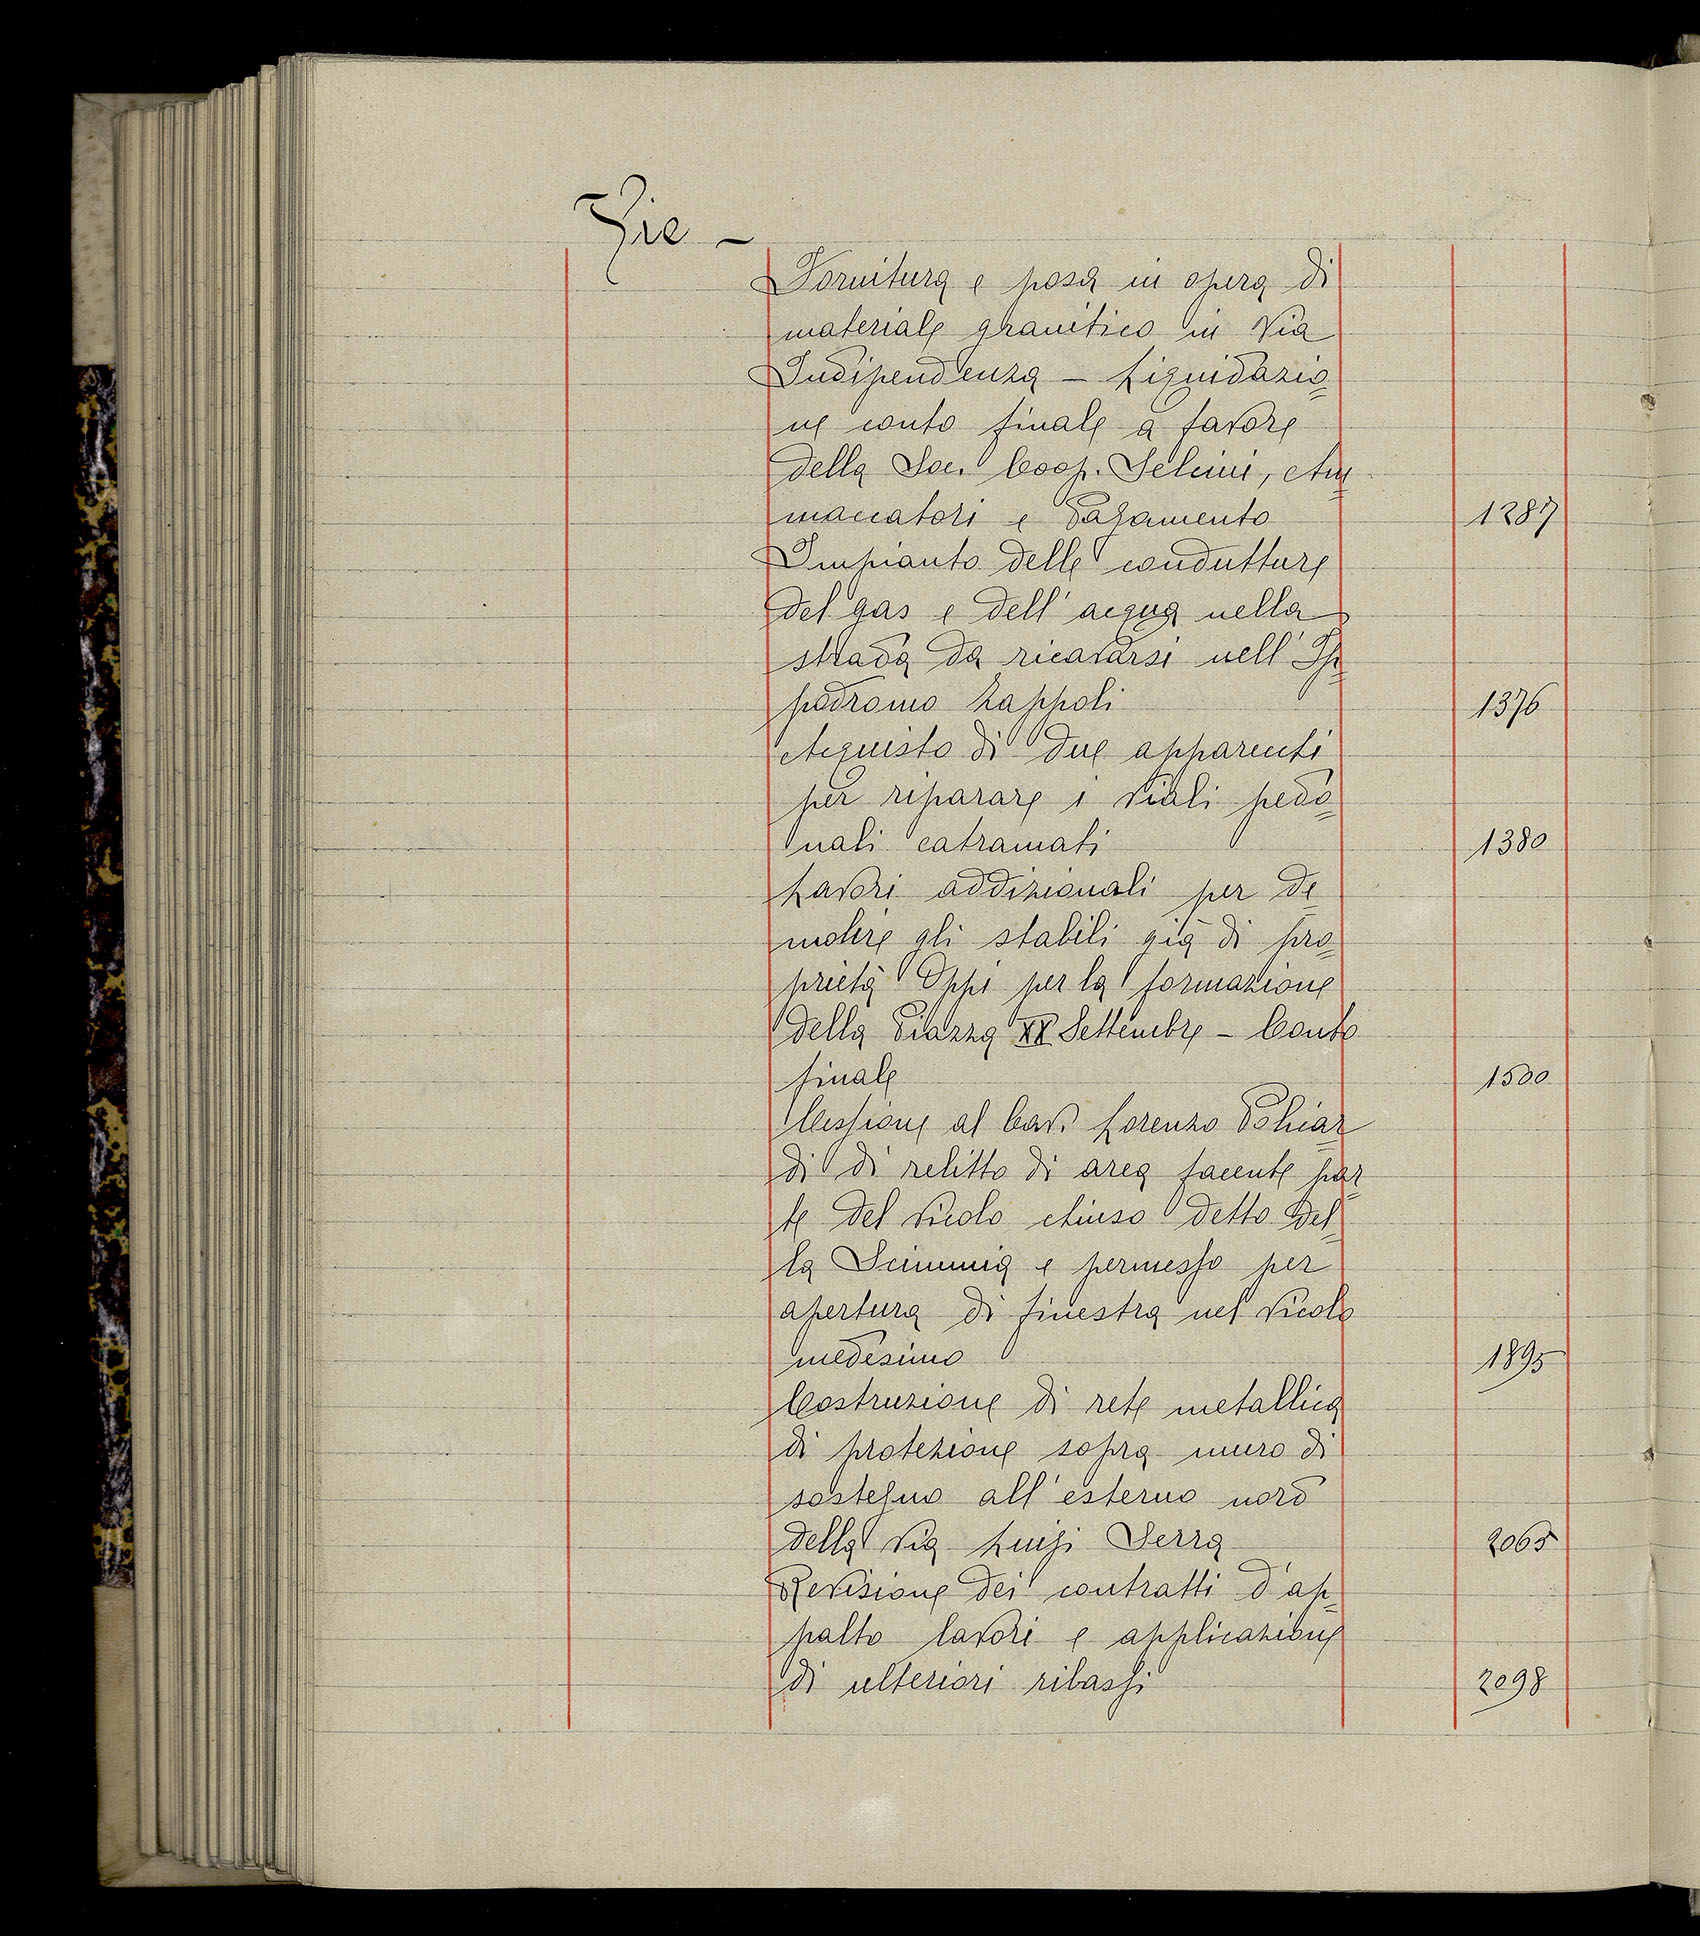 Vie -
Fornitura e posa in opera di
materiale granitico in Via
Indipendenza - Liquidazio=
ne conto finale a favore
della Soc. Coop. Selcini, Am=
maccatori e Pagamento 1287
Impianto delle condutture
del gas e dell'acqua nella
strada da ricavarsi nell'Ip=
podromo Zappoli 1376
Acquisto di due apparecchi
per riparare i viali pedo=
nali catramati 1380
Lavori addizionali per de=
molire gli stabili già di pro=
prietà Oppi per la formazione
della Piazza XX Settembre - Conto
finale 1500
Cessione al Cav. Lorenzo
di di relitto di area facente par=
te del vicolo chiuso detto del=
la Scimmia e permesso per
apertura di finestra nel vicolo
medesimo 1895
Costruzione di rete metallica
di protezione sopra muro di
sostegno all'esterno nord
della via Luigi Serra 2065
Revisione dei contratti d'ap=
palto lavori e applicazione
di ulteriori ribassi 2098